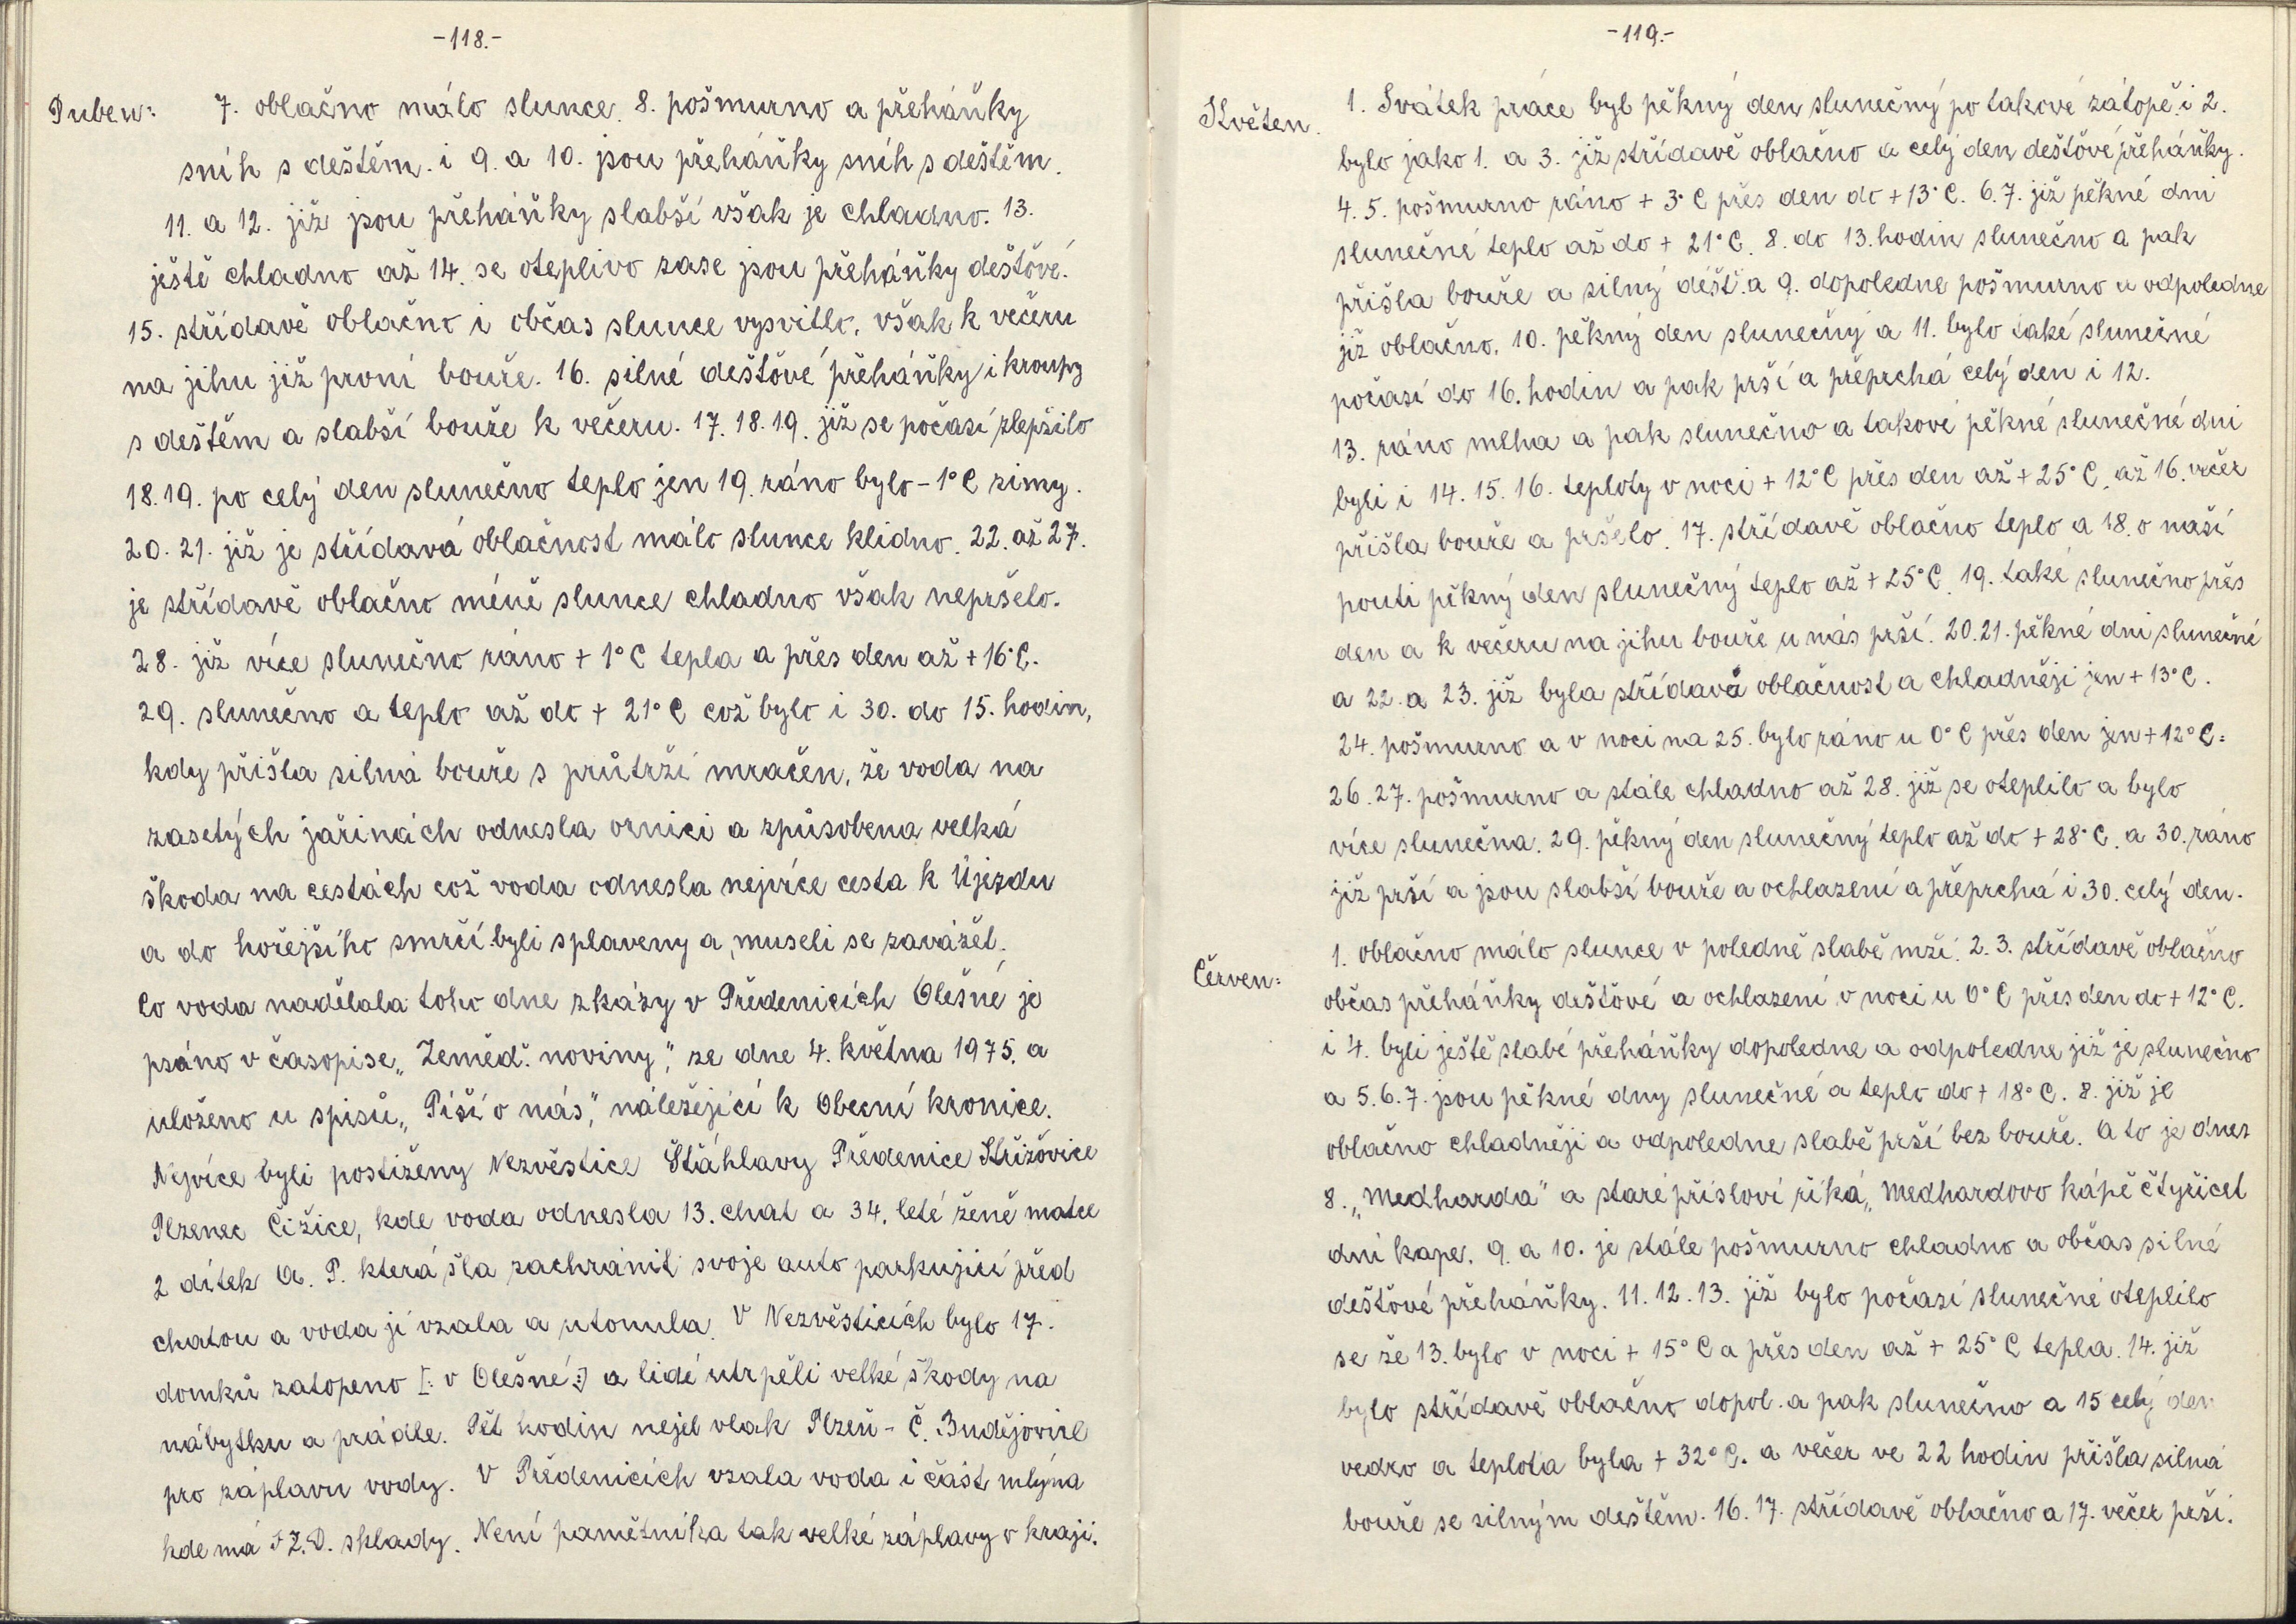 -118.-
Duben: 7. oblačno málo slunce. 8. pošmurno a přeháňky
sníh s deštěm. i 9. a 10. jsou přeháňky sníh s deštěm.
11. a 12. již jsou přeháňky slabší však je chladno. 13.
ještě chladno až 14. se oteplivo zase jsou přeháňky dešťové.
15. střídavě oblačno i občas slunce vysvitlo, však k večeru
na jihu již první bouře. 16. silné dešťové přeháňky i kroupy
s deštěm a slabší bouře k večeru. 17. 18. 19. již se počasí zlepšilo
18. 19. po celý den slunečno teplo jen 19. ráno bylo - 1° C zimy.
20. 21. již je střídavá oblačnost málo slunce klidno. 22. až 27.
je střídavě oblačno méně slunce chladno však nepršelo.
28. již více slunečno ráno + 1° C tepla a přes den až + 16° C.
29. slunečno a teplo až do + 21° C což bylo i 30. do 15. hodin,
kdy přišla silná bouře s průtrží mračen, že voda na
zasetých jařinách odnesla ornici a způsobena velká
škoda na cestách což voda odnesla nejvíce cesta k Újezdu
a do hořejšího smrčí byli splaveny a museli se zavážet.
Co voda nadělala toho dne zkázy v Předenicích Olešné je
psáno v časopise „Zeměd. noviny", ze dne 4. května 1975. a
uloženo u spisů „Píší o nás", náležející k Obecní kronice.
Nejvíce byli postiženy Nezvěstice Šťáhlavy Předenice Střížovice
Plzenec Čižice, kde voda odnesla 13. chat a 34. leté ženě matce
2 dítek A. P. která šla zachránit svoje auto parkující před
chatou a voda jí vzala a utonula. V Nezvěsticích bylo 17.
domků zatopeno [: v Olešné :] a lidé utrpěli velké škody na
nábytku a prádle. Pět hodin nejel vlak Plzeň - Č. Budějovice
pro záplavu vody. V Předenicích vzala voda i část mlýna
kde má J Z. D. sklady. Není pamětníka tak velké záplavy v kraji.
-119.-
Květen. 1. Svátek práce byl pěkný den slunečný po takové zátopě. i 2.
bylo jako 1. a 3. již střídavě oblačno a celý den dešťové přeháňky.
4. 5. pošmurno ráno + 3° C přes den do + 13° C. 6. 7. již pěkné dni
slunečné teplo až do + 21° C. 8. do 13. hodin slunečno a pak
přišla bouře a silný déšť. a 9. dopoledne pošmurno u odpoledne
již oblačno. 10. pěkný den slunečný a 11. bylo také slunečné
počasí do 16. hodin a pak prší a přeprchá celý den i 12.
13. ráno mlha a pak slunečno a takové pěkné slunečné dni
byli i 14. 15. 16. teploty v noci + 12° C přes den až + 25° C. až 16. večer
přišla bouře a pršelo. 17. střídavě oblačno teplo a 18. o naší
pouti pěkný den slunečný teplo až + 25° C. 19. také slunečno přes
den a k večeru na jihu bouře u nás prší. 20. 21. pěkné dni slunečné
a 22. a 23. již byla střídavá oblačnost a chladněji jen + 13° C.
24. pošmurno a v noci na 25. bylo ráno u 0° C přes den jen + 12° C.
26. 27. pošmurno a stále chladno až 28. již se oteplilo a bylo
více slunečna. 29. pěkný den slunečný teplo až do + 28° C. a 30. ráno
již prší a jsou slabší bouře a ochlazení a přeprchá i 30. celý den.
Červen: 1. oblačno málo slunce v poledně slabě mží. 2. 3. střídavě oblačno
občas přeháňky dešťové a ochlazení v noci u 0° C přes den do + 12° C.
i 4. byli ještě slabé přeháňky dopoledne a odpoledne již je slunečno
a 5. 6. 7. jsou pěkné dny slunečné a teplo do + 18° C. 8. již je
oblačno chladněji a odpoledne slabě prší bez bouře. A to je dnes
8. „Medharda" a staré přísloví říká „Medhardovo kápě čtyřicet
dní kape. 9. a 10. je stále pošmurno chladno a občas silné
dešťové přeháňky. 11. 12. 13. již bylo počasí slunečné oteplilo
se že 13. bylo v noci + 15° C a přes den až + 25° C tepla. 14. již
bylo střídavě oblačno dopol. a pak slunečno a 15 celý den
vedro a teplota byla + 32° C. a večer ve 22 hodin přišla silná
bouře se silným deštěm. 16. 17. střídavě oblačno a 17. večer prší.